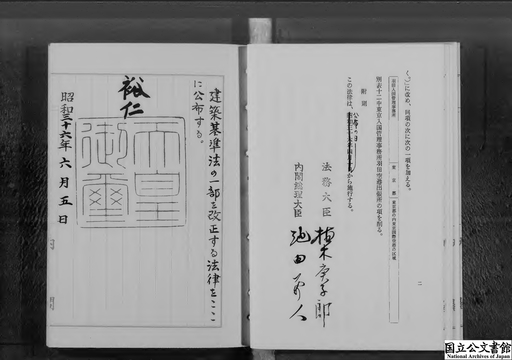 く。)に改め、同項の次に次の一項を加える。
別表十二中東京入国管理事務所羽田空港出張所の項を削る。
附則
この法律は、公布の日から施行する。
法務大臣 植木庚子郎
内閣総理大臣 池田勇人
二
建築基準法の一部を改正する法律をここ
に公布する。
裕仁
天皇
御璽
昭和三十六年六月五日
国立公文書館
National Archives of Japan